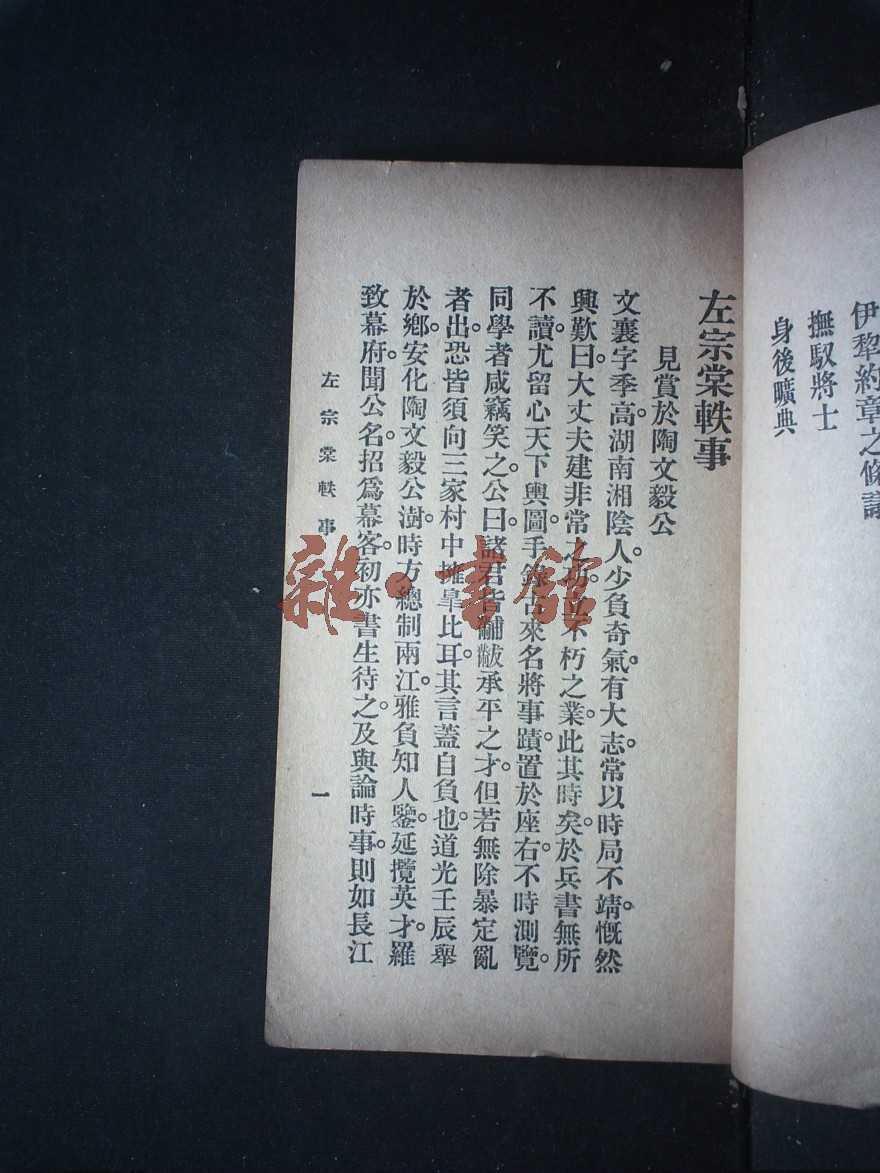 伊犂約章之條議
撫馭將士
身後曠典
左宗棠軼事
見賞於陶文毅公
文襄字季高。湖南湘陰人。少負奇氣。有大志。常以時局不靖。慨然
興歎曰。大丈夫建非常之功。立不朽之業。此其時矣。於兵書無所
不讀。尤留心天下輿圖。手錄古來名將事蹟。置於座右。不時測覽。
同學者咸竊笑之。公曰。諸君皆黼黻承平之才。但若無除暴定亂
者出。恐皆須向三家村中擁臯比耳。其言蓋自負也。道光壬辰舉
於鄉。安化陶文毅公澍。時方總制兩江。雅負知人鑒。延攬英才。羅
致幕府。聞公名。招爲幕客。初亦書生待之。及與論時事。則如長江
左宗棠軼事
一
雜·書館